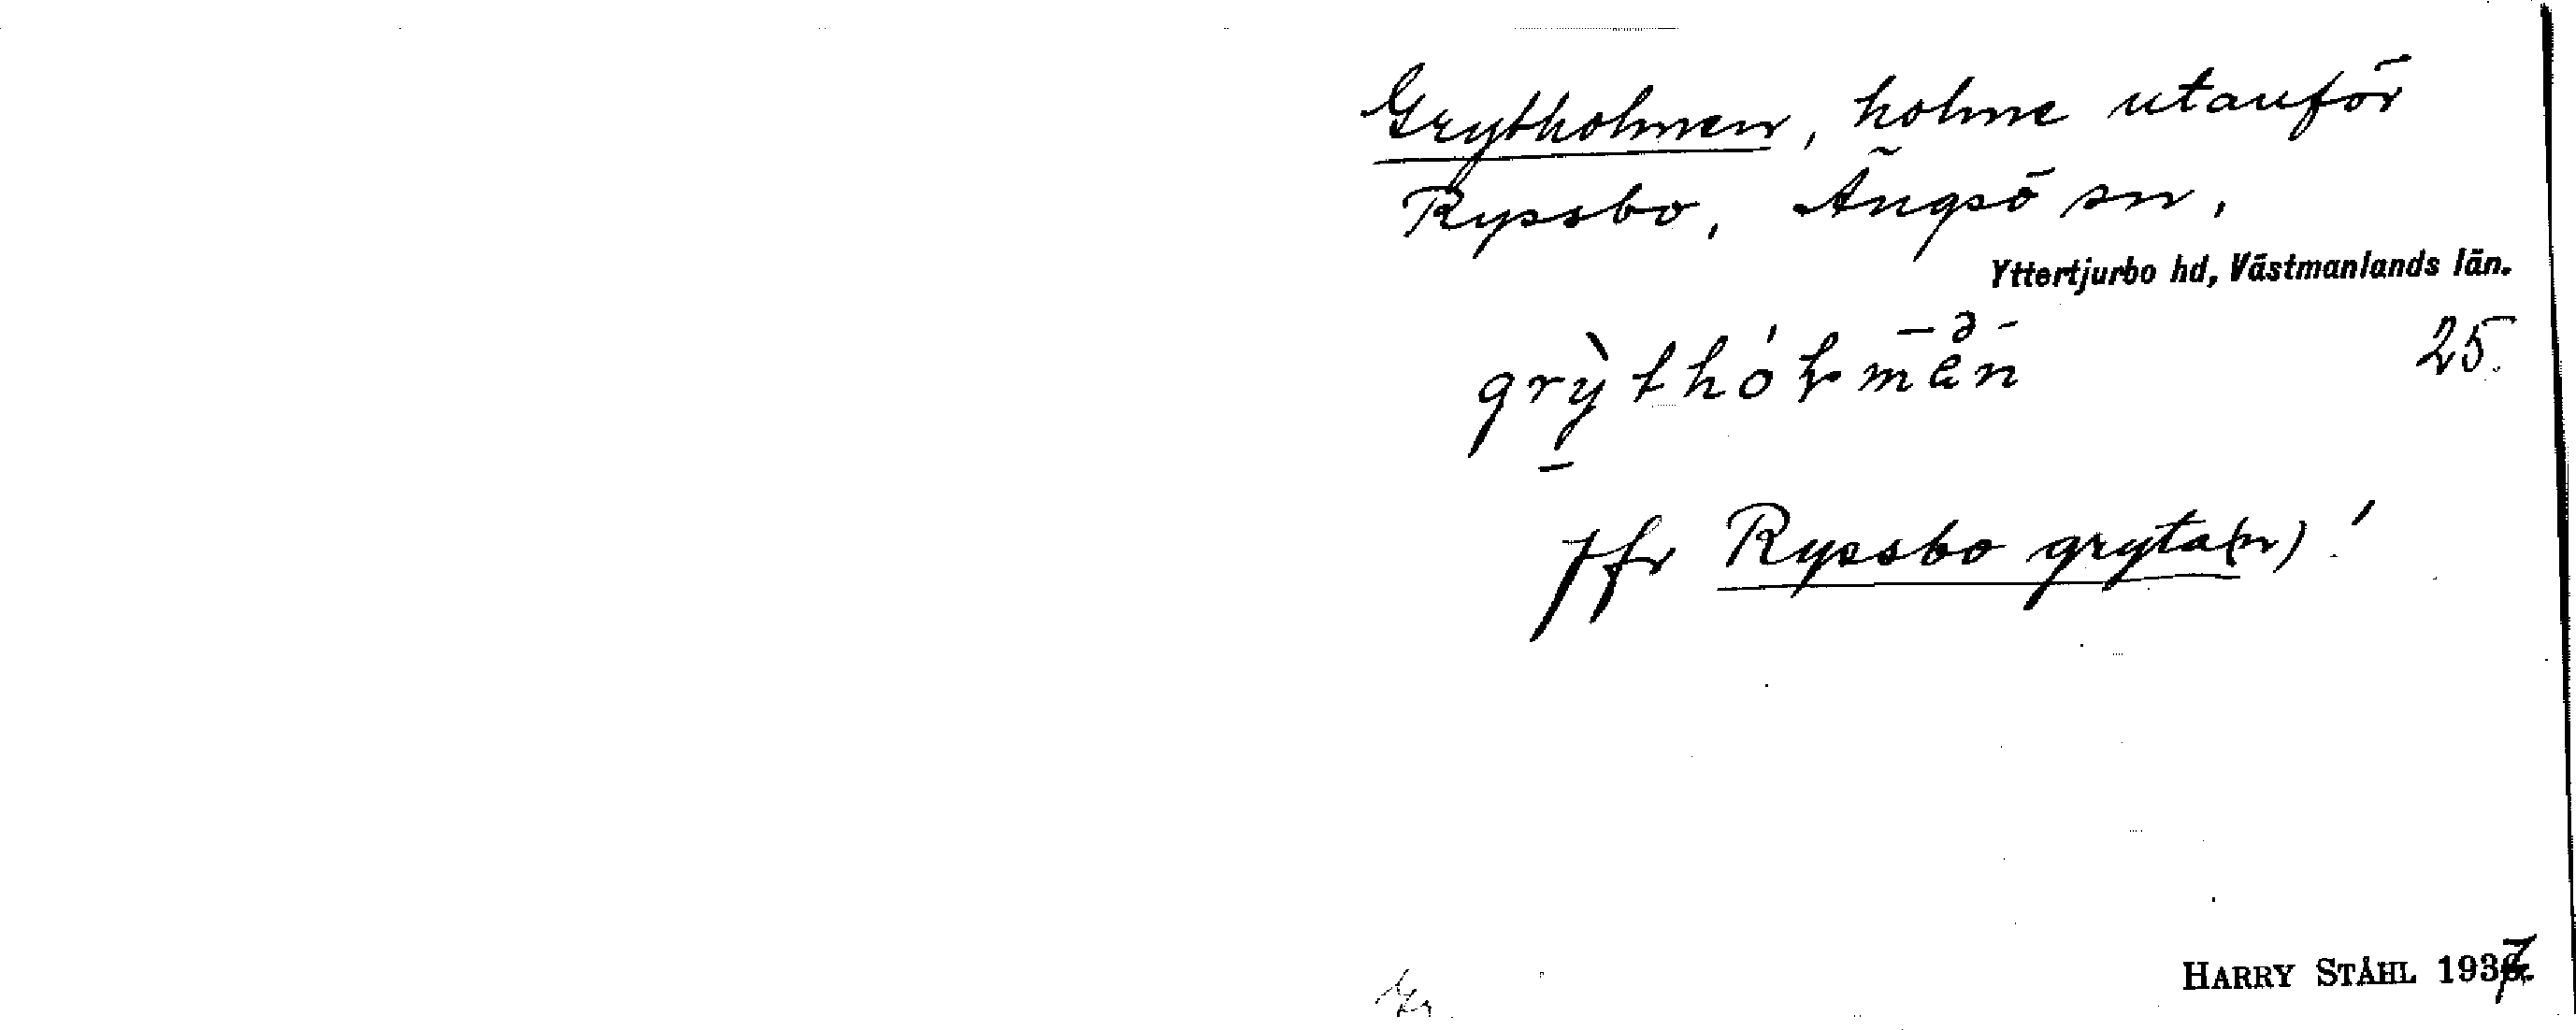 Grytholmen, holme utanför
Ryssbo, Ängsö sn.
Yttertjurbo hd, Västmanlands län.
– ə –
grỳthóɫmån 25.
jfr Ryssbo gryta(n)!
HARRY STÅHL 1937.